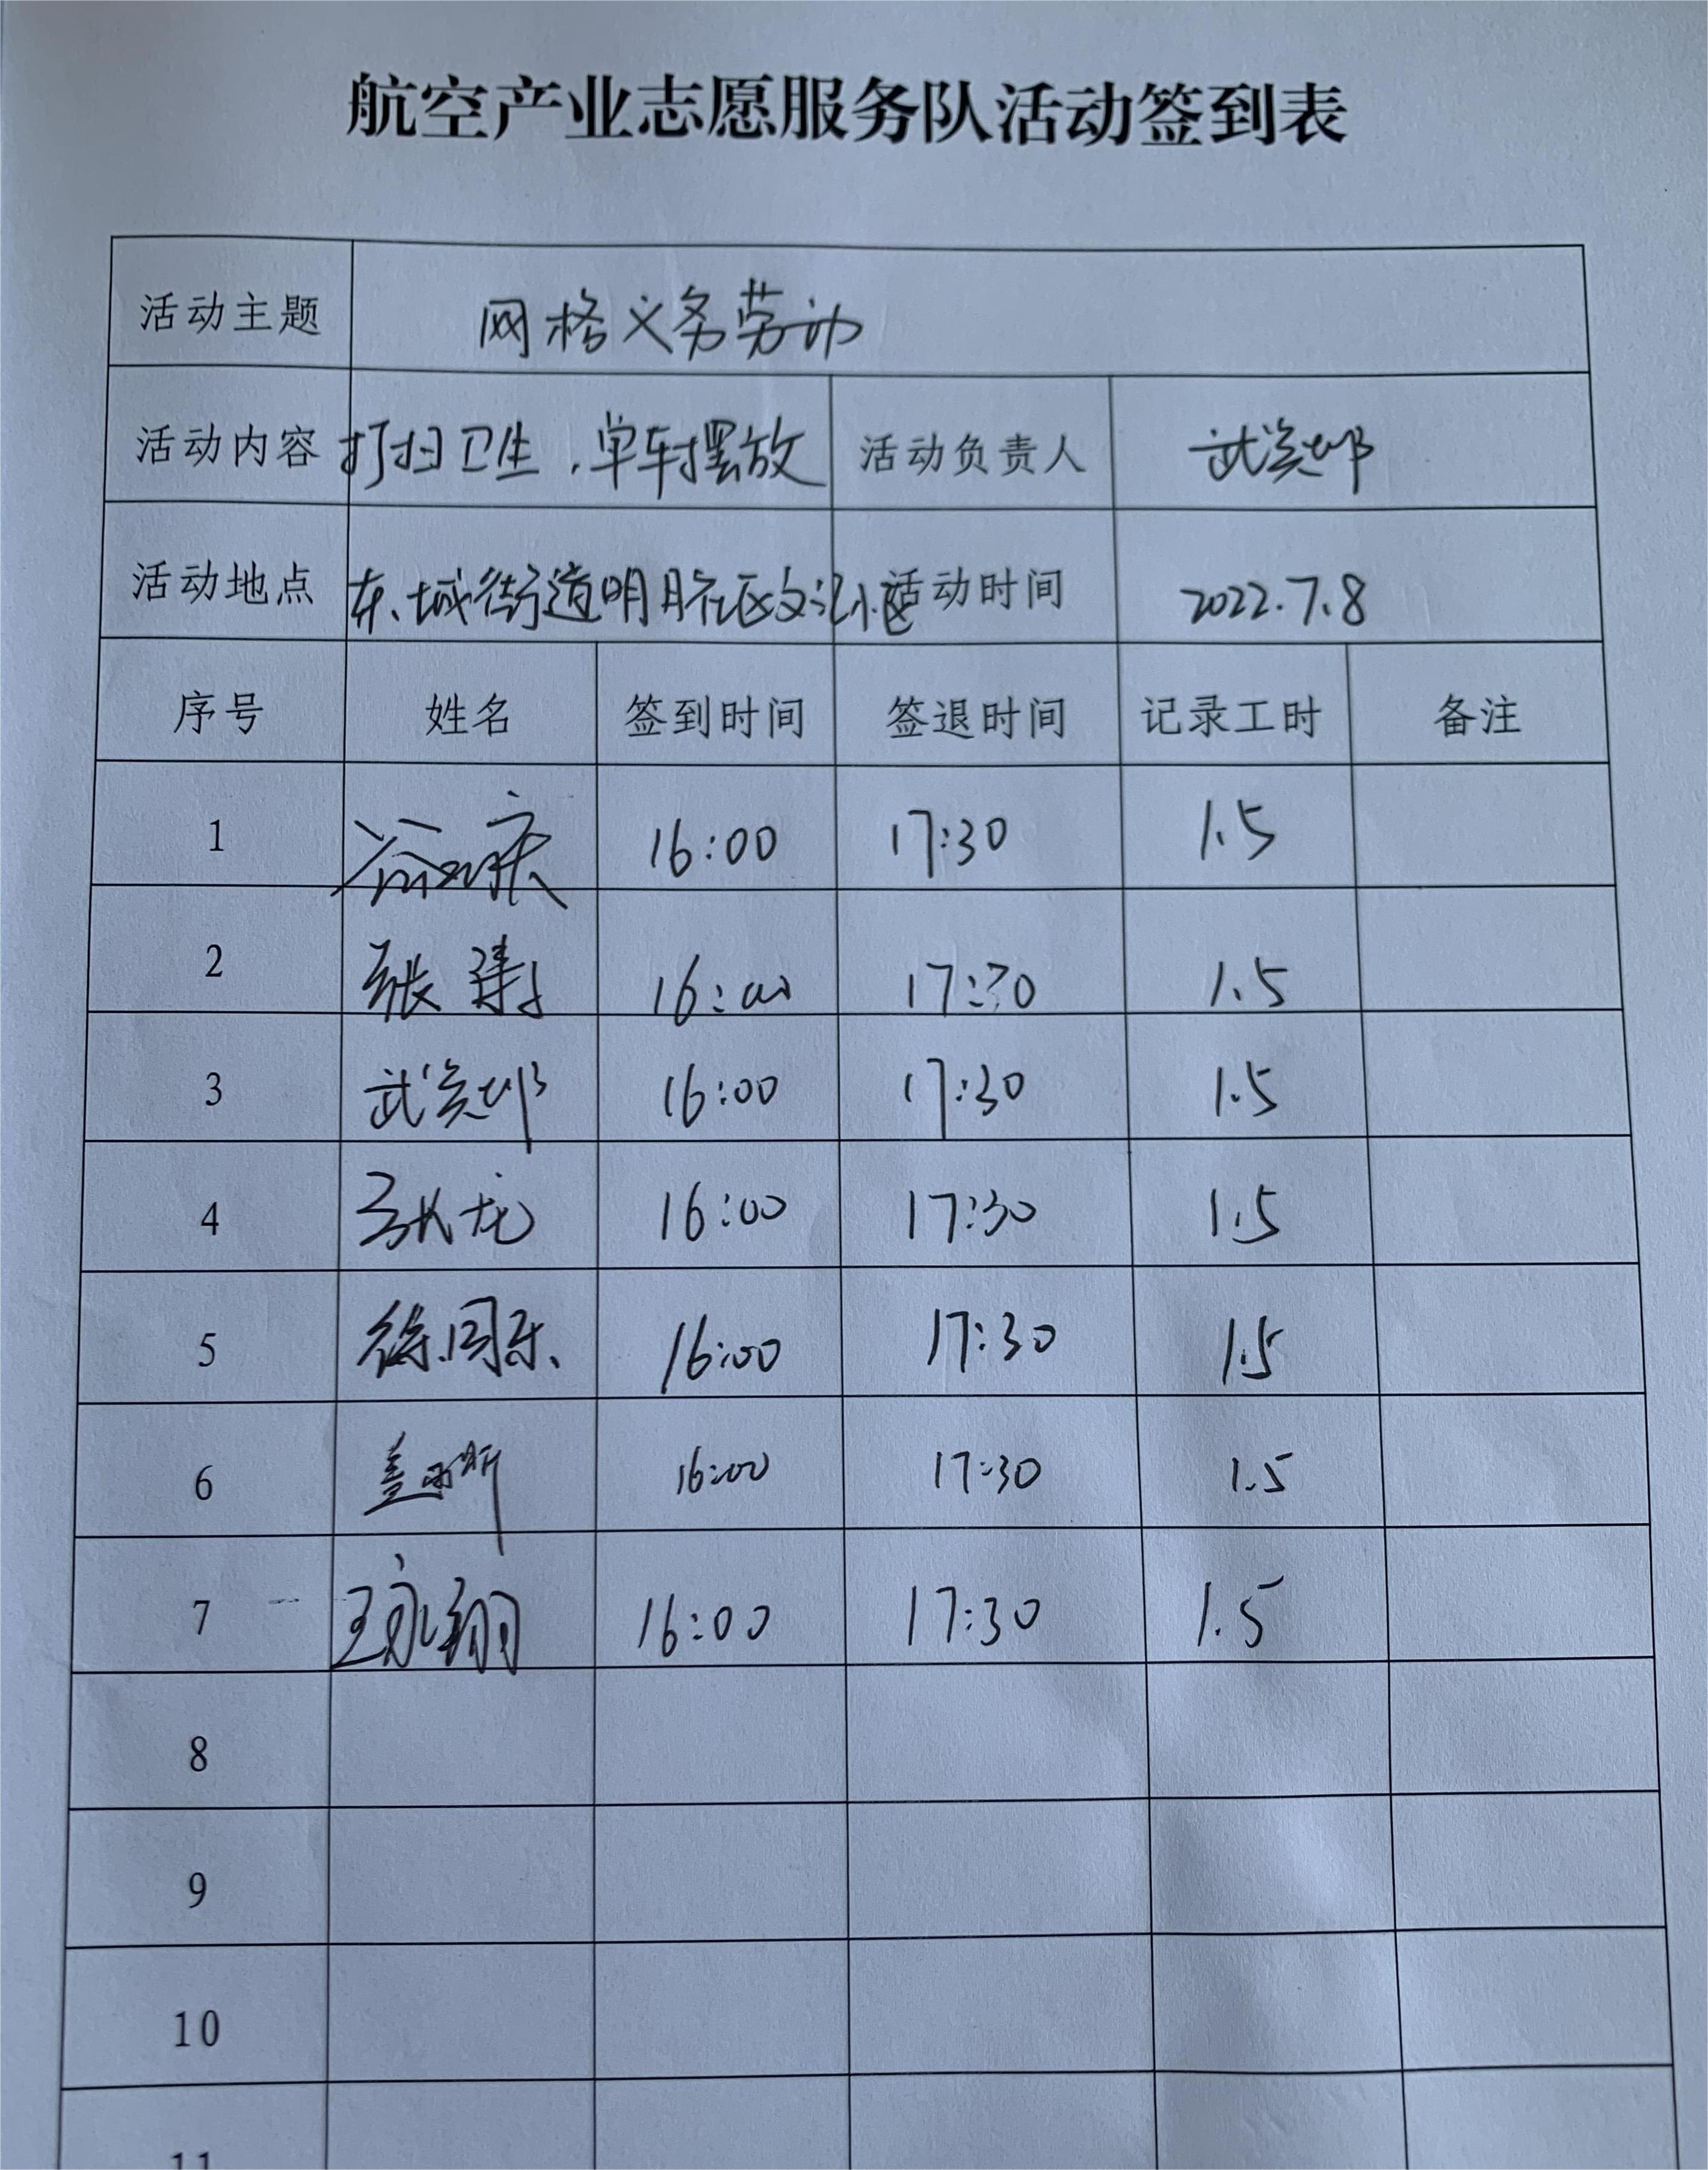 航空产业志愿服务队活动签到表
活动主题 网格义务劳动
活动内容 打扫卫生，单车摆放 活动负责人 武
活动地点 东城街道明月社区文汇小区 活动时间 2022.7.8
序号 姓名 签到时间 签退时间 记录工时 备注
1 16:00 17:30 1.5
2 张涛 16:00 17:30 1.5
3 武 16:00 17:30 1.5
4 龙 16:00 17:30 1.5
5 徐同乐 16:00 17:30 1.5
6 16:00 17:30 1.5
7 王永翔 16:00 17:30 1.5
8
9
10
11